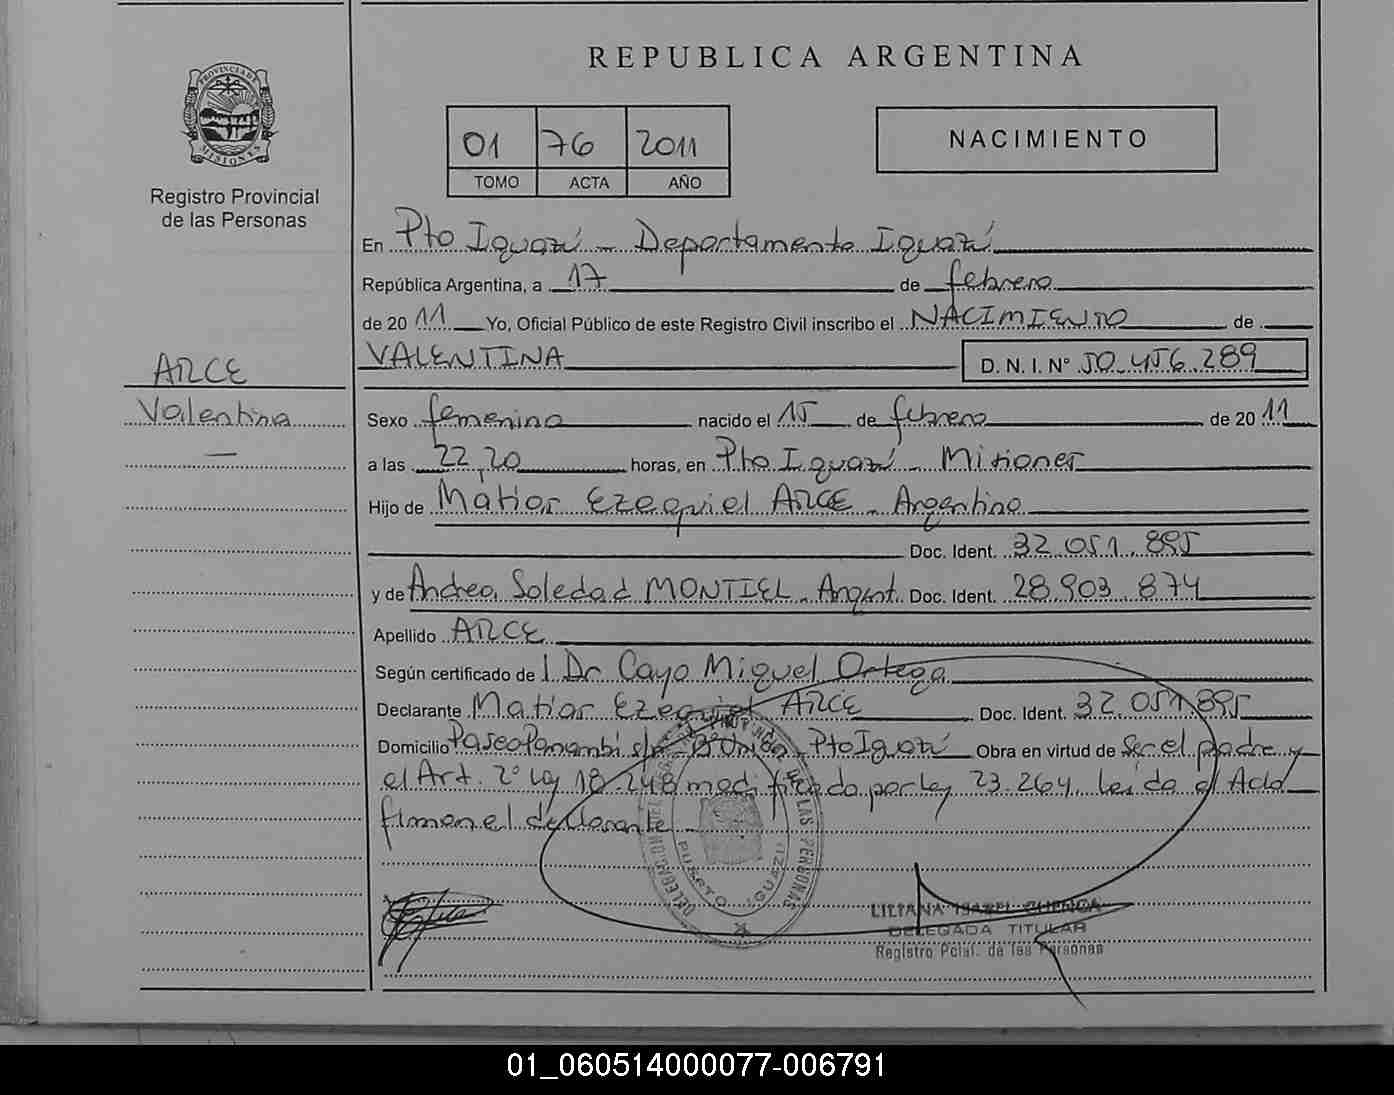 REPUBLICA ARGENTINA
PROVINCIA DE
MISIONES
Registro Provincial
de las Personas
01 76 2011
TOMO ACTA AÑO
NACIMIENTO
En Pto Iguazú - Departamento Iguazú
República Argentina, a 17 de febrero
de 2011 Yo, Oficial Público de este Registro Civil inscribo el NACIMIENTO de
VALENTINA D. N. I. Nº 50.456.289
ARCE
Valentina
Sexo femenino nacido el 15 de febrero de 2011
a las 22,20 horas, en Pto Iguazú - Misiones
Hijo de Matías Ezequiel ARCE - Argentino
Doc. Ident. 32.051.895
y de Andrea Soledad MONTIEL - Argent. Doc. Ident. 28.903.874
Apellido ARCE
Según certificado de Dr Cayo Miguel Ortega
Declarante Matías Ezequiel ARCE Doc. Ident. 32.051.895
Domicilio Paseo Panambí s/n - Bº Unido - Pto Iguazú Obra en virtud de Ser el padre y
el Art. 2º Ley 18.248 modificado por Ley 23.264 leída el Acta
firman el declarante
DELEGACION DEL REGISTRO PROVINCIAL DE LAS PERSONAS
PUERTO IGUAZU
LILIANA ISABEL CUENCA
DELEGADA TITULAR
Registro Pcial. de las Personas
01_060514000077-006791